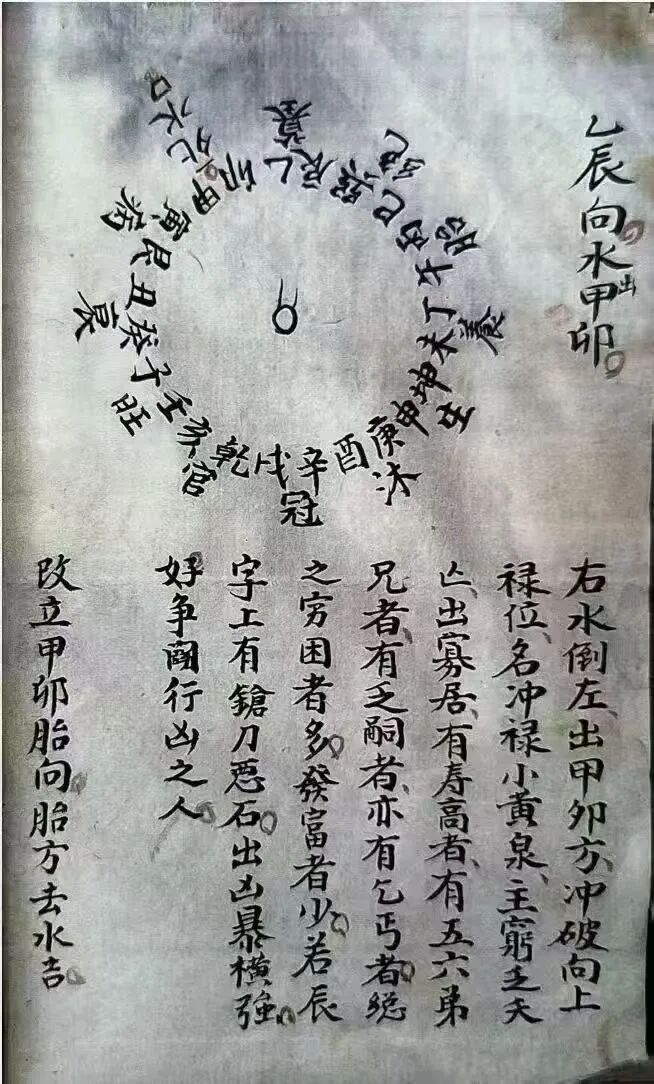 乙辰向。水出甲卯。
墓
绝
胎
养
生
沐
冠
官
旺
衰
病
死
水口
乙辰巽巳丙午丁未坤申庚酉辛戌乾亥壬子癸丑艮寅甲卯
右水倒左、出甲卯方、冲破向上
禄位、名冲禄小黄泉、主窮乏夭
亡、出寡居、有寿高者、有五六弟
兄者、有乏嗣者、亦有乞丐者。総
之穷困者多。發富者少。若辰
字上有鎗刀恶石。出凶暴横强。
好争闘行凶之人。
改立甲卯胎向。胎方去水吉。